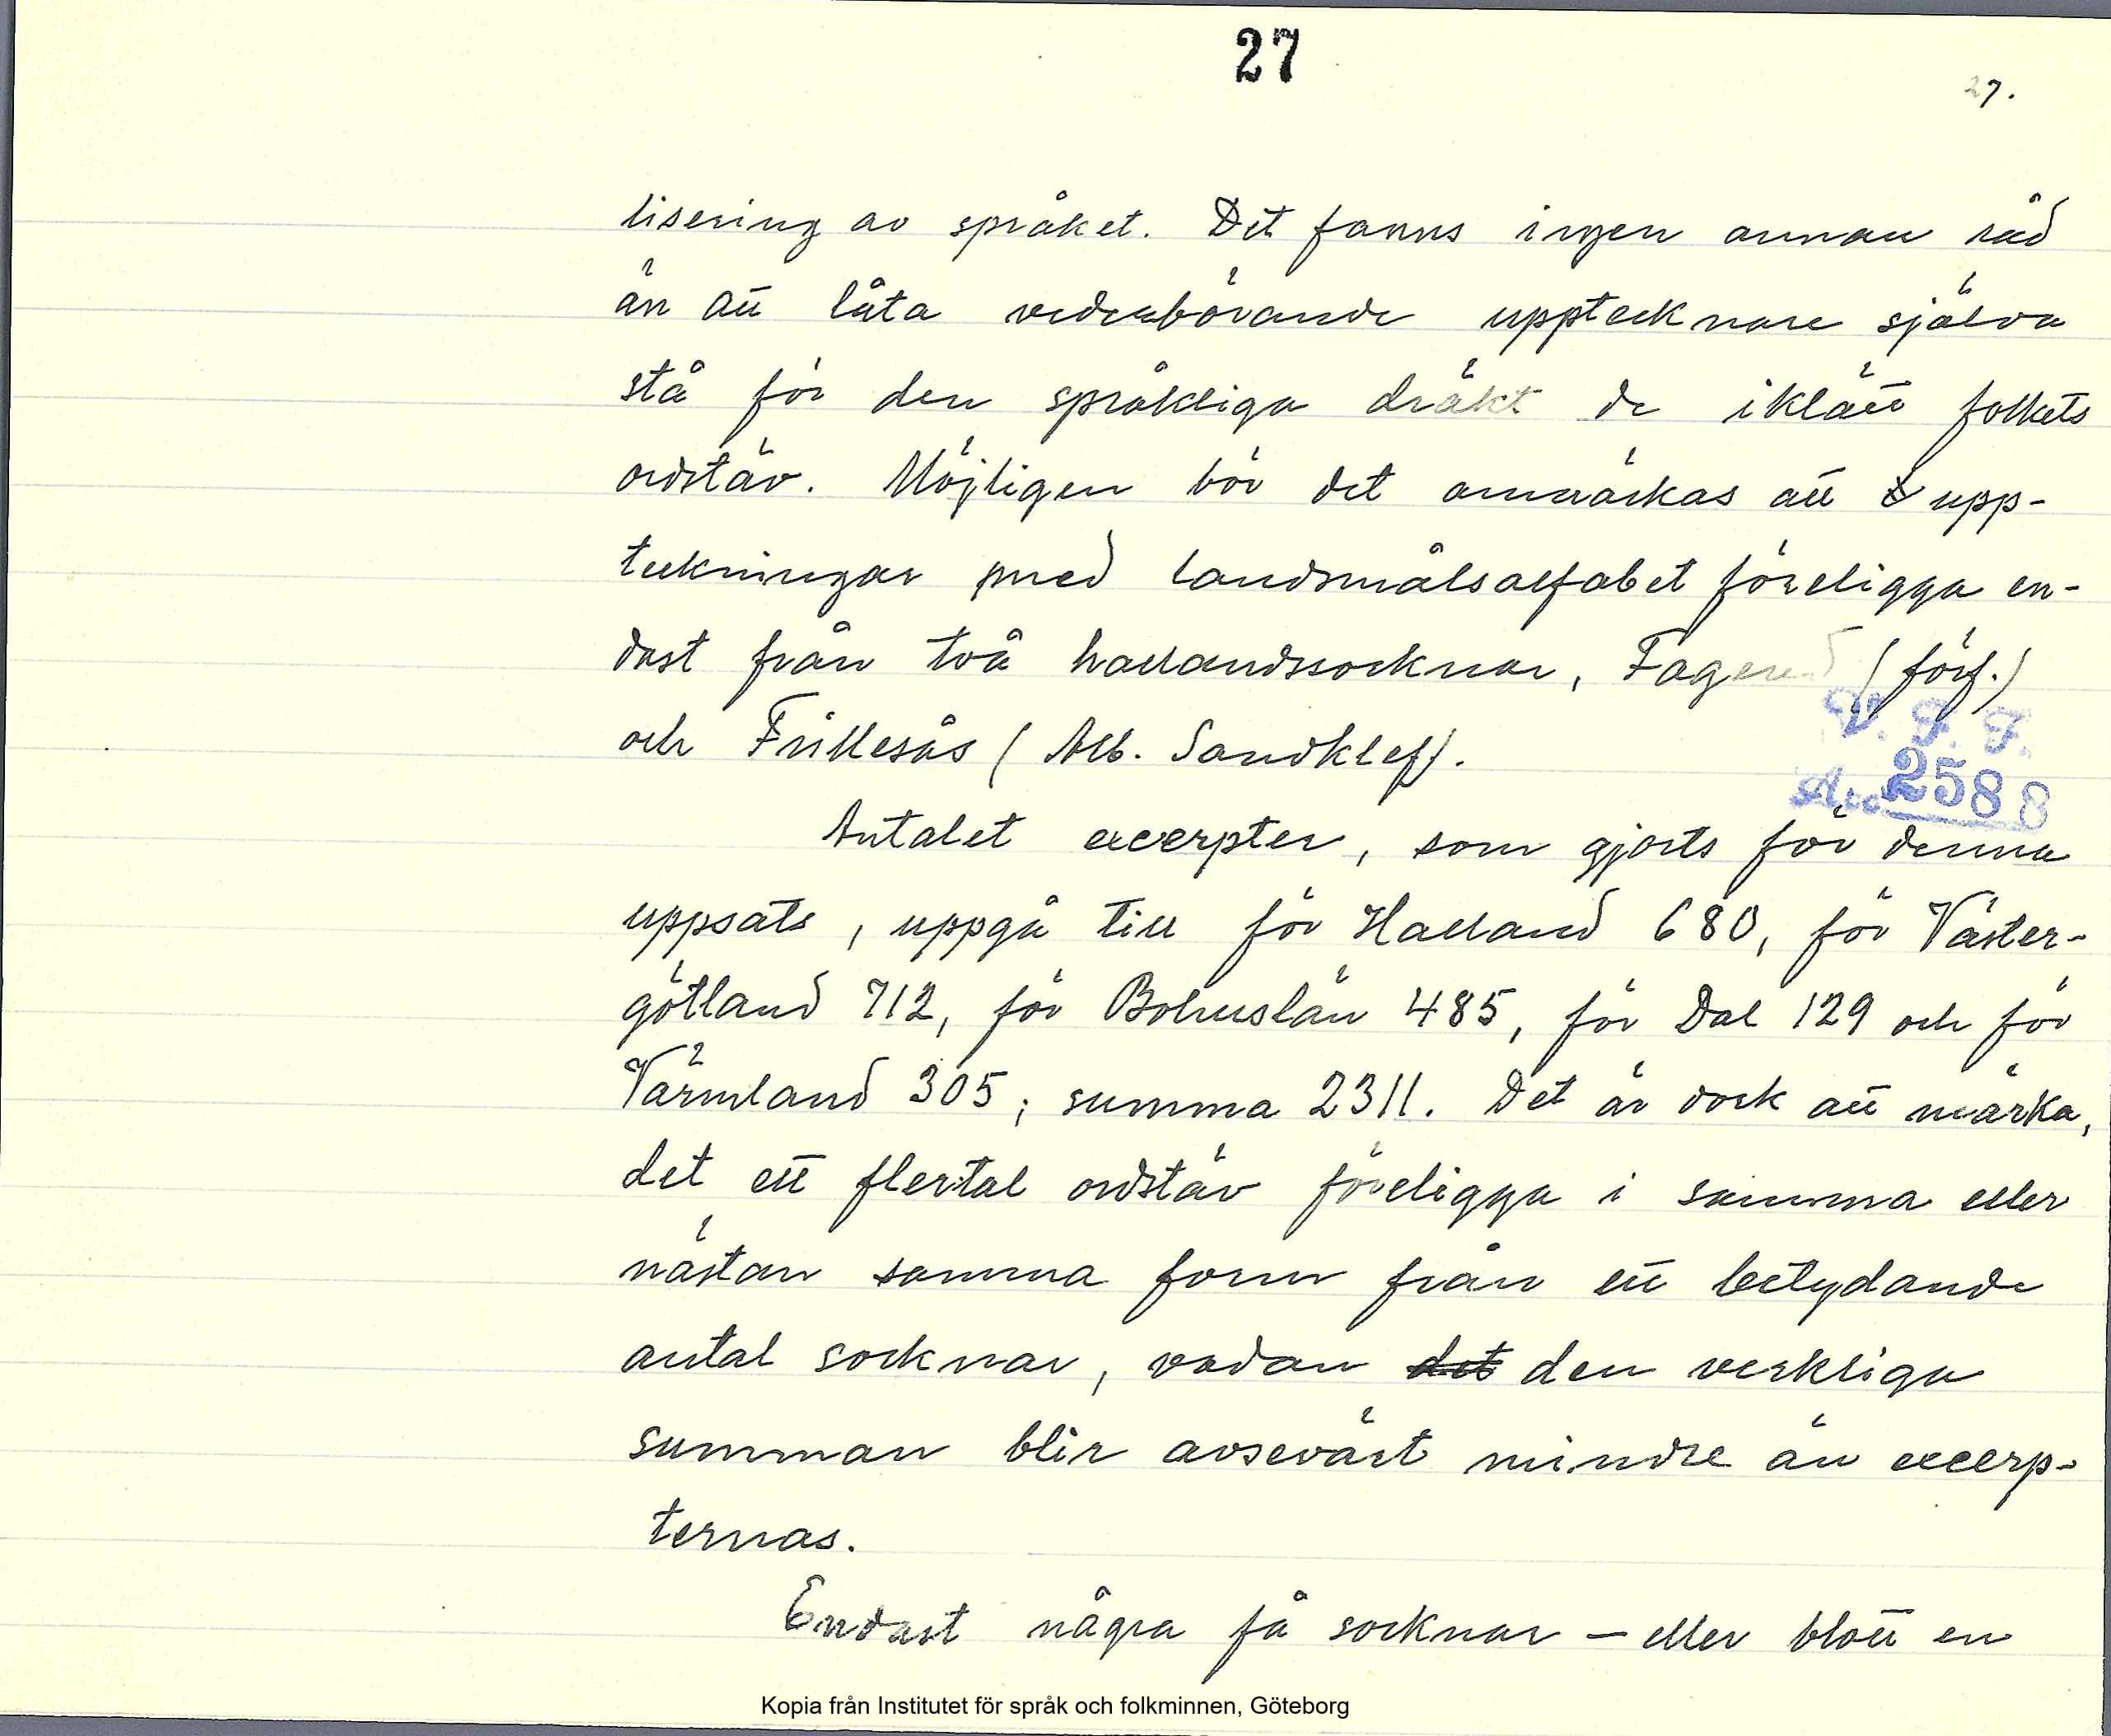 27
27.
lisering av språket. Det fanns ingen annan råd
än att låta vederbörande upptecknare själva
stå för den språkliga dräkt de iklätt folkets
ordstäv. Möjligen bör det anmärkas att upp-
teckningar med landsmålsalfabet föreligga en-
dast från två hallandssocknar, Fagered (förf.)
och Frillesås (Alb. Sandklef).
V. F. F.
Acc. 2588
Antalet excerpter, som gjorts för denna
uppsats, uppgå till för Halland 680, för Väster-
götland 712, för Bohuslän 485, för Dal 129 och för
Värmland 305; summa 2311. Det är dock att märka,
det ett flertal ordstäv föreligga i samma eller
nästan samma form från ett betydande
antal socknar, vadan det den verkliga
summan blir avsevärt mindre än excerp-
ternas.
Endast några få socknar – eller blott en
Kopia från Institutet för språk och folkminnen, Göteborg